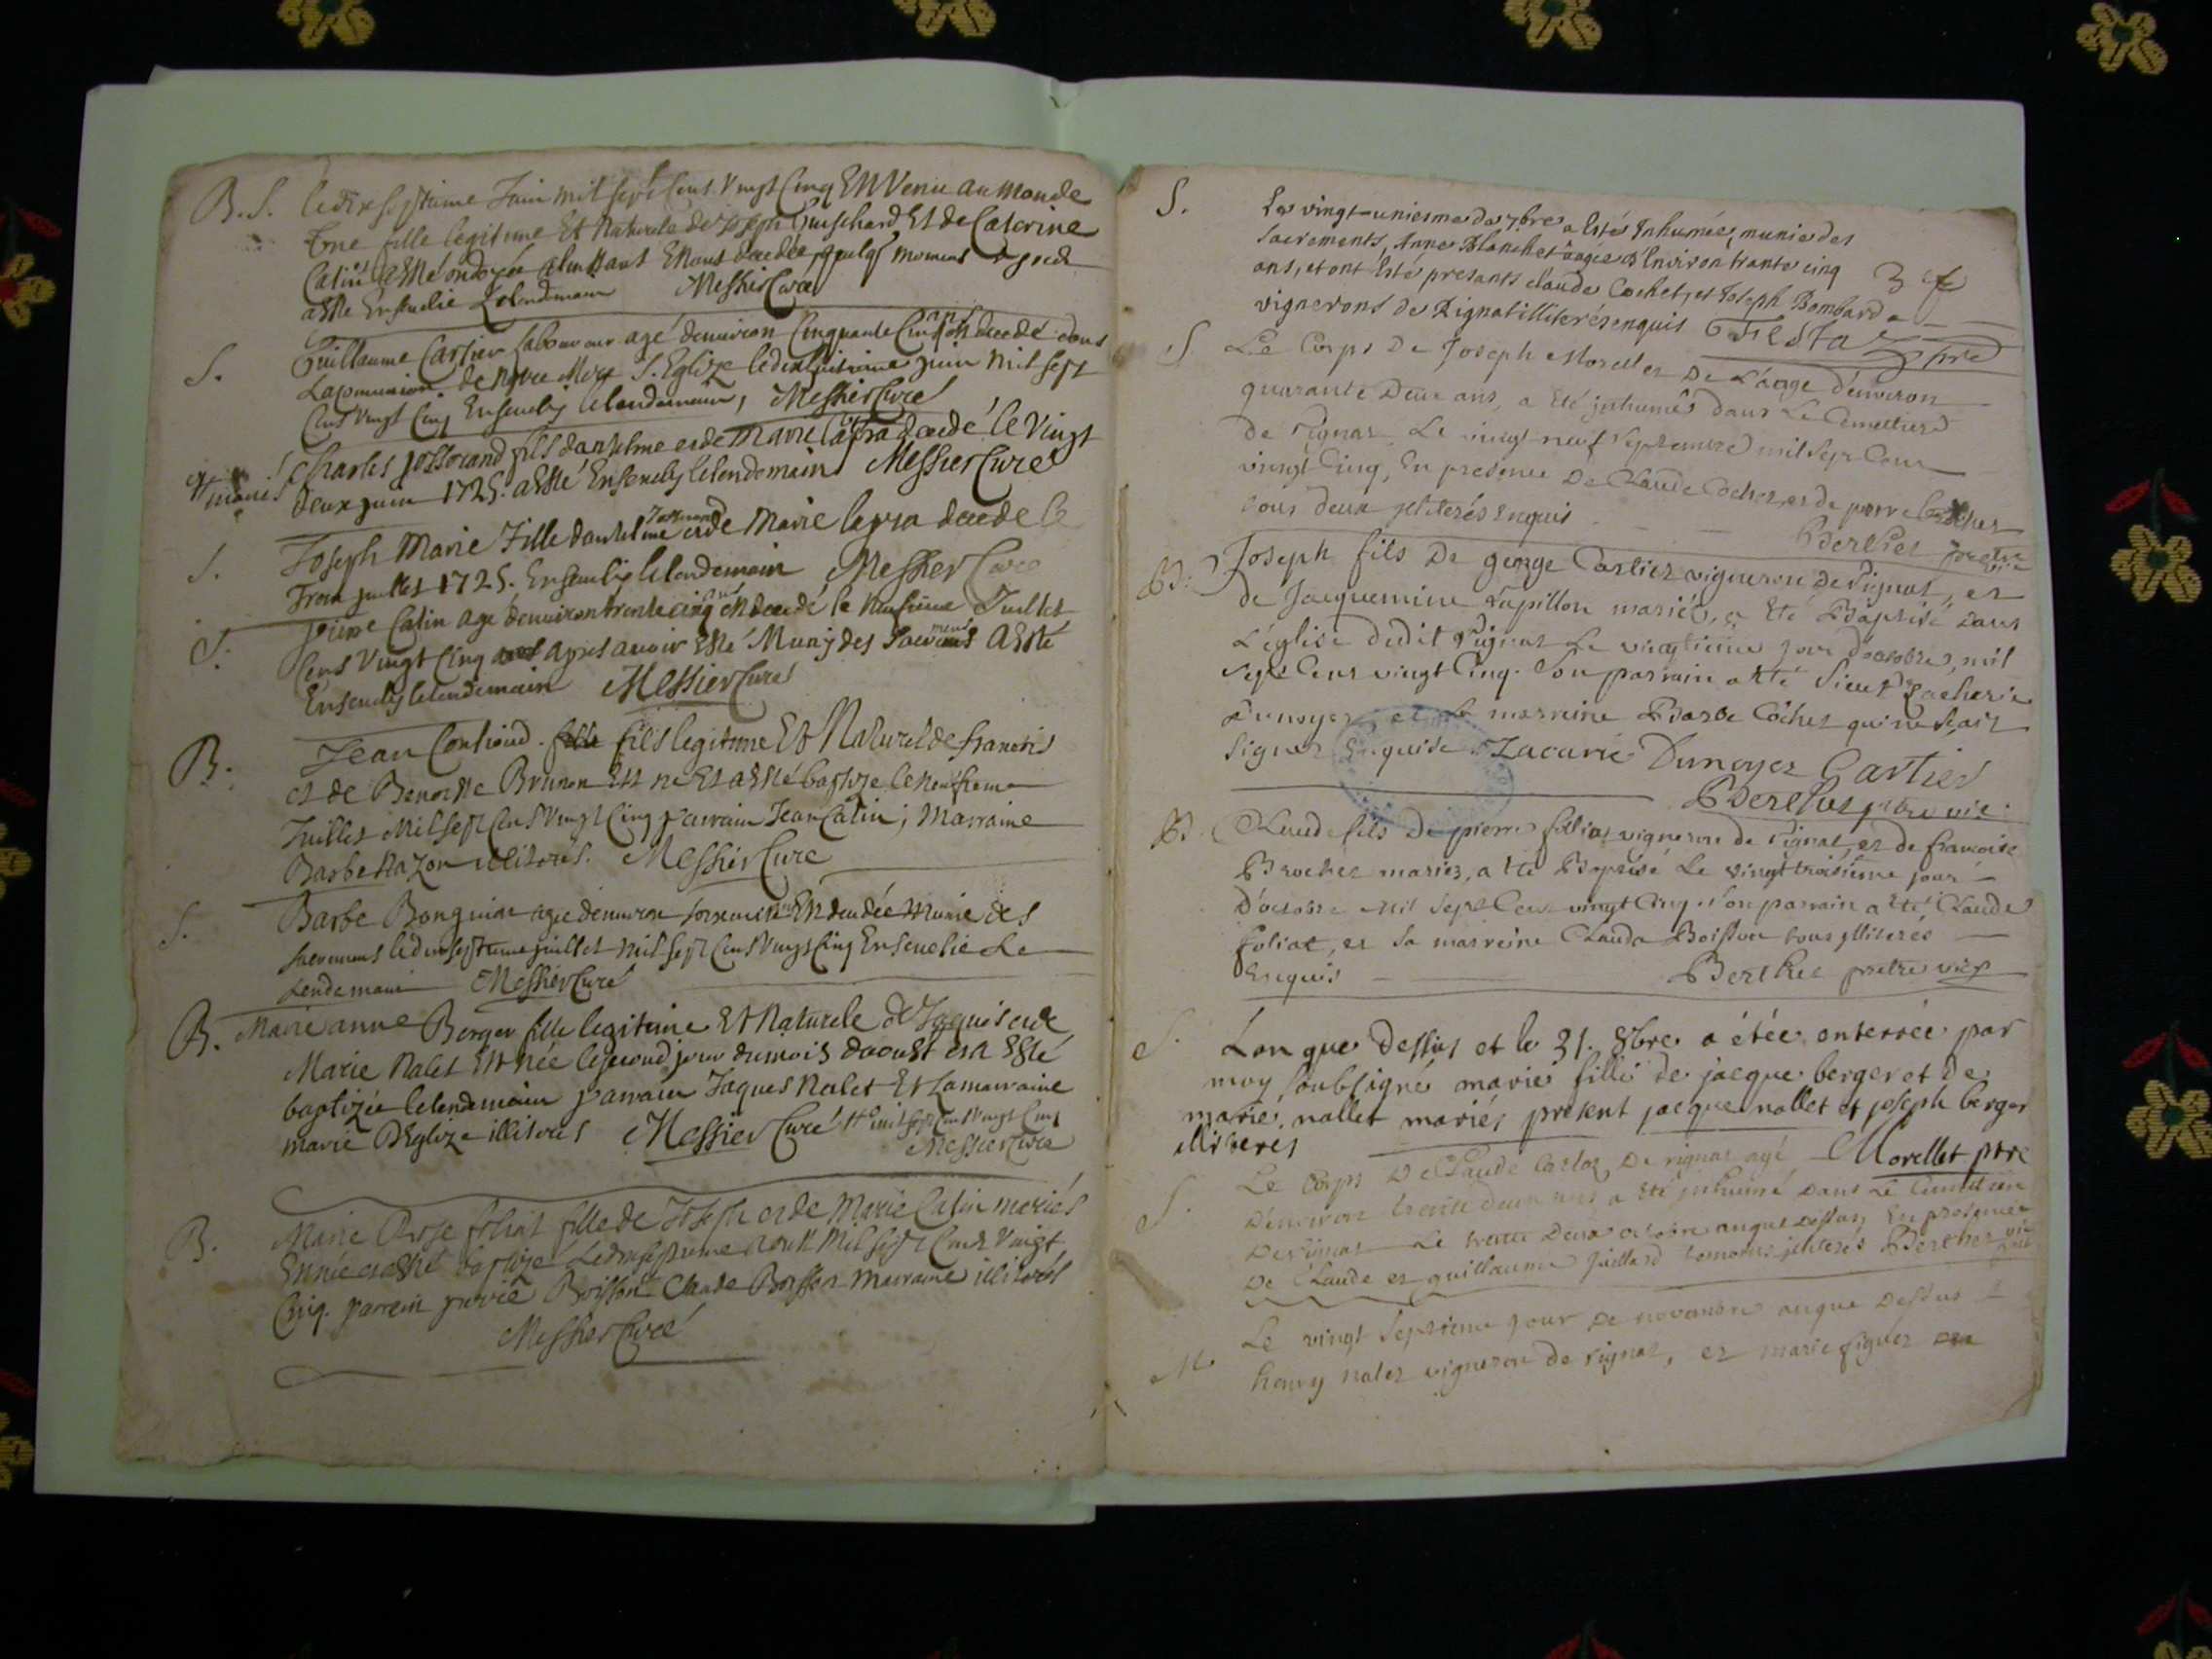 B.S. le dixseptieme Juin mil sept cens vingt cinq Est Venu au Monde
Une fille legitime Et Naturele de Joseph Guischard Et de Caterine
Catin a Esté ondoyée Est decedée quelqs momens
a Esté Ensevelie Le lendemain Messier Curé
S. Guillaume Cartier laboureur agé denviron Cinquante Cinq ans Est decedé dans
La Comunion de Notre Mere S. Eglize le dixhuitieme juin mil sept
Cens Vingt Cinq Ensevely le lendemain, Messier Curé
S. Charles josserand fils danthelme et de Marie decedé le Vingt
deux juin 1725. a Esté Ensevely le lendemain Messier Curé
S. Joseph Marie Fille danthelme Josserand et de Marie decede le
Trois juillet 1725. Ensevely le lendemain Messier Curé
S. Pierre Catin agé denviron trente cinq ans Est decedé le Neufieme Juillet
Cens Vingt Cinq apres avoir Esté Muny des Sacremens a Esté
Ensevely le lendemain Messier Curé
B. Jean fils legitime Et Naturel de francois
et de Benoitte Brunon Est né Et a Esté baptizé le Neufieme
Juillet Mil Sept Cens Vingt Cinq parrain Jean Catin, Marraine
Barbe Razon illiterés. Messier Curé
S. Barbe agée denviron Est decedée Munie des
Sacremens le dixseptieme juillet mil sept Cens Vingt Cinq Ensevelie Le
Lendemain Messier Curé
B. Marie anne Berger fille legitime Et Naturele de Jaques et de
Marie Nalet Est Née le second jour du mois daoust et a Esté
baptizée le lendemain parrain Jaques Nalet Et La marraine
marie DEglize illiterés Messier Curé mil sept Cens Vingt Cinq
Messier Curé
B. Marie foliat fille de Joseph et de Marie Catin mariés
Est née et a Esté baptizé Le dixseptieme Aoust Mil Sept Cens Vingt
Cinq. parrein Boisson Claude Boisson Marraine illiterés
Messier Curé
S. Le vingt-uniesme de 7bre a Esté Inhumée, munie des
Sacrements, Anne Blanchet âagée d'Environ trante cinq
ans, et ont Esté presants claude Cochet, et Joseph Bombard 3
vignerons de Rignat illiterés enquis Festa ptre
S. Le Corps De Joseph Morellet De L'âage d'environ
quarante Deux ans, a Eté jnhumés dans Le Cemettiere
de Rignat Le vingt neuf Septembre mil Sept Cens
vingt Cinq, En presence De Claude Cochet, et de pierre
tous deux jlliterés Enquis Berthet pretre vic
B. Joseph fils De george Cartier vigneron de Rignat, et
de Jacquemine Papillon mariés, a Eté Baptisé dans
L'église dudit Rignat Le vingtieme jour d'octobre, mil
Sept Cens vingt Cinq. Son parrain a Eté Sieur Zacherie
Dunoyer et La marreine Barbe Cochet qui ne Sçait
Signer Enquise Zacarie Dunoyer Cartier
Berthet ptre vic.
B. Claude fils de pierre foliat vigneron de Rignat et de francoise
Brochet mariez, a Eté Baptisé Le vingt troisiéme jour
D'octobre Mil Sept Cens vingt Cinq. Son parrain a Eté Claude
foliat, et Sa marreine Clauda Boisson tous jlliterés
Enquis Berthet pretre vic
S. Lan que Dessus et le 31. 8bre a étée enterrée par
moy Soubsigné marie fille de jacque berger et de
marie nallet mariés present jacque nallet et joseph berger
illiterés Morellet ptre
S. Le Corps De Claude De rignat agé
D'environ trente deux ans a Eté jnhumé dans Le Cemettiere
De Rignat Le octobre an que Dessus, En presence
De Claude et guillaume Juillard temoins jlliterés Berthet
M. Le vingt Septieme jour De novembre an que Dessus
henry nalet vigneron de rignat, et marie